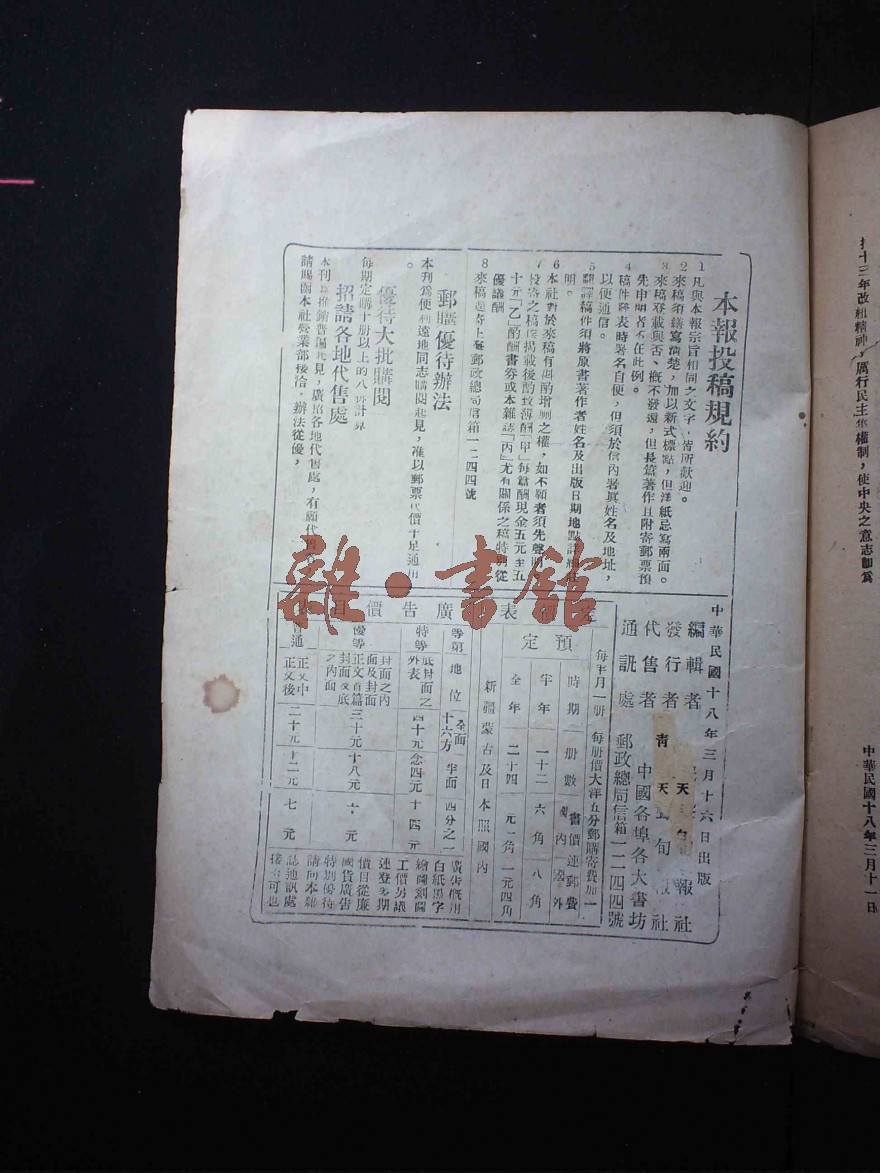 本報投稿規約
1 凡與本報宗旨相同之文字，皆所歡迎。
2 來稿須繕寫清楚，加以新式標點，但洋紙忌寫兩面。
3 來稿登載與否、概不發還，但長篇著作且附寄郵票預
先申明者不在此例。
4 稿件發表時署名自便，但須於信內署眞姓名及地址，
以便通信。
5 翻譯稿件須將原書著作者姓名及出版日期地點
明。
6 本社對於來稿有斟酌增刪之權，如不願者須先聲明
7 投寄之稿、揭載後酌致薄酬「甲」每篇酬現金五元至五
十元「乙」酌酬書券或本雜誌「丙」尤有關係之稿特別從
優議酬
8 來稿逕寄上海郵政總局信箱一二四四號
郵購優待辦法
本刊爲便利遠地同志購閱起見，准以郵票代價十足通用
。
優待大批購閱
每期定購十册以上的八折計算
招請各地代售處
本刊爲推銷普遍起見，廣招各地代售處，有願代
請賜函本社營業部接洽，辦法從優，
中華民國十八年三月十六日出版
編輯者 報社
發行者 青天 旬報社
代售者 中國各埠各大書坊
通訊處 郵政總局信箱一二四四號
每半月一册 每册價大洋五分郵購寄費加一
預定
時期 册數 書價連郵費
國內 國外
半年 一十二 六角 八角
全年 二十四 元一角 一元四角
新疆蒙古及日本照國內
表 廣告價目
等第 地位 全面十六方 半面 四分之一
特等 底封面之外表 四十元 念四元 十四元
優等 封面之內面及封面正文首篇封面及底之內面 三十元 十八元 十元
普通 正文中正文後 二十元 十二元 七元
廣告概用
白紙黑字
繪圖刻圖
工價另議
連登多期
價目從廉
國貨廣告
特別優待
請向本雜
誌通訊處
接洽可也
雜·書館
十三年改組精神，厲行民主集權制，使中央之意志即爲
中華民國十八年三月十一日